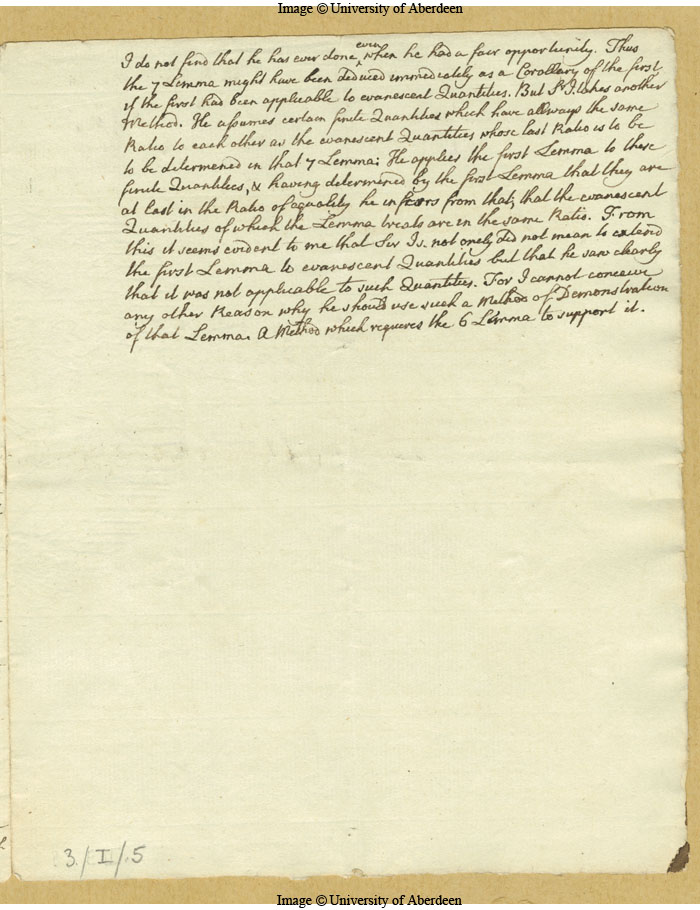 Image © University of Aberdeen
I do not find that he has ever done, even when he had a fair opportunity. Thus
the 7 Lemma might have been deduced immediately as a Corollary of the first
if the first had been applicable to evanescent Quantities. But Sr I. takes another
Method. He assumes certain finite Quantities which have allways the same
Ratio to each other as the evanescent Quantities whose last Ratio is to be
to be determened in that 7 Lemma: He applies the first Lemma to these
finite Quantities, & having determened by the first Lemma that they are
at last in the Ratio of æquality he infers from that, that the evanescent
Quantities of which the Lemma treats are in the same Ratio. From
this it seems evident to me that Sir Is. not onely did not mean to extend
the first Lemma to evanescent Quantities but that he saw clearly
that it was not applicable to such Quantities. For I cannot conceive
any other Reason why he should use such a Method of Demonstration
of that Lemma. A Method which requeres the 6 Lemma to support it.
3/I/.5
Image © University of Aberdeen